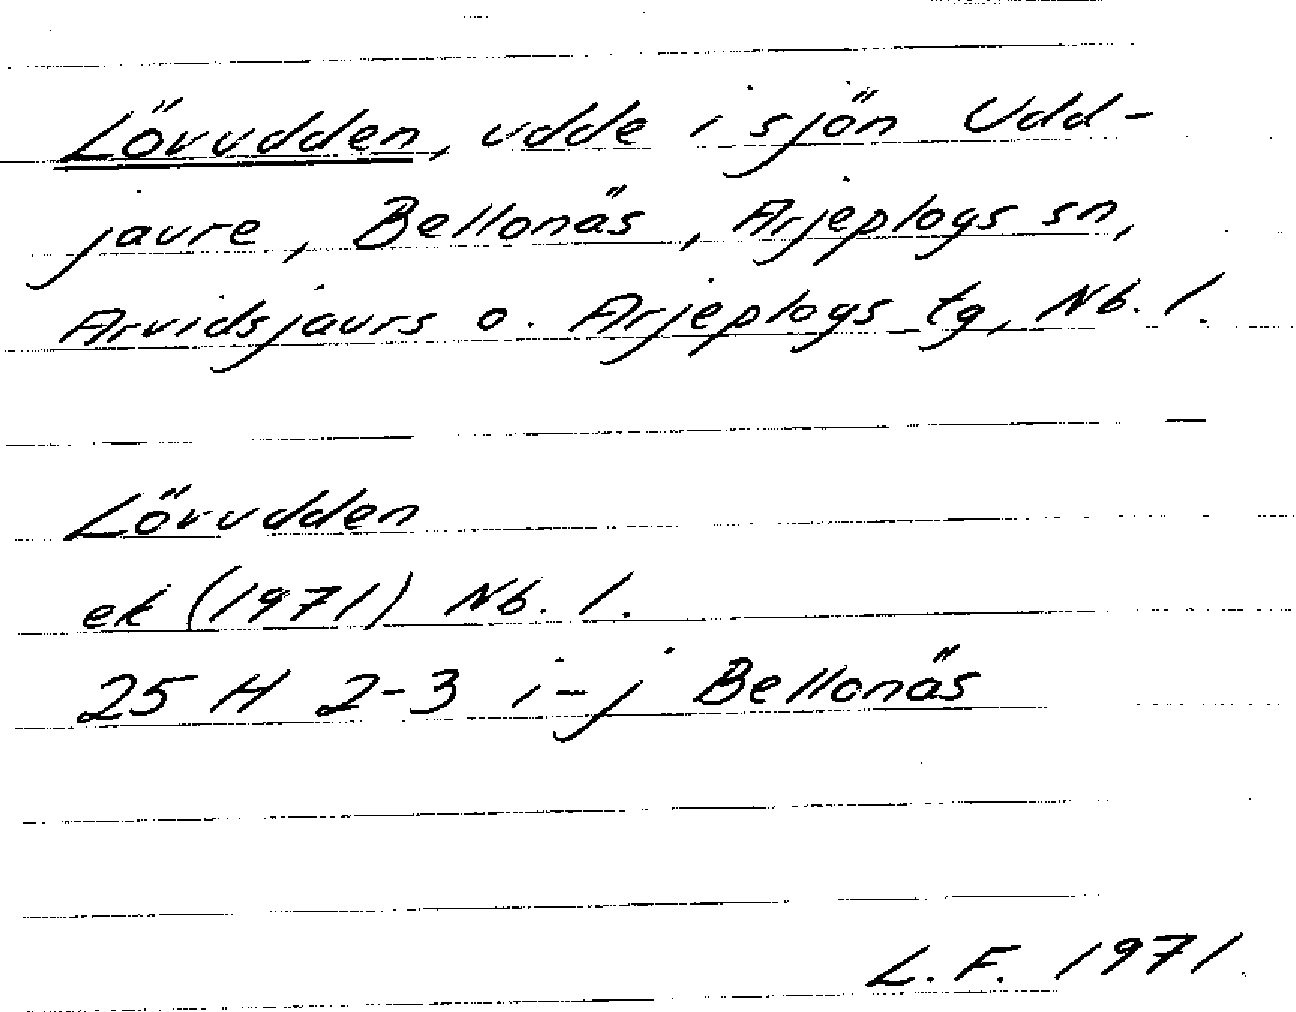 Lövudden, udde i sjön Udd-
jaure, Bellonäs, Arjeplogs sn,
Arvidsjaurs o. Arjeplogs tg, Nb. l.
Lövudden
ek (1971) Nb. l.
25 H 2-3 i-j Bellonäs
L. F. 1971